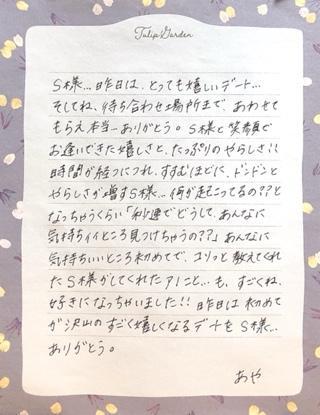 Tulip Garden
S様…昨日は、とっても嬉しいデート…
そしてね、待ち合わせ場所まで、あわせて
もらえ本当ーありがとう。S様と笑顔で
お逢いできた嬉しさと、たっぷりのやらしさ!!
時間が経つにつれ、すすむほどに、ドンドンと
やらしさが増すS様…何が起こってるの??と
なっちゃうくらい「秒速でどうして、あんなに
気持ちイイところ見つけちゃうの??」あんなに
気持ちいいところ初めてで、コリっと教えてくれ
たS様がしてくれたアノこと…も、すごくね、
好きになっちゃいました!!昨日は初めて
が沢山のすごく嬉しくなるデートをS様…
ありがとう。
あや